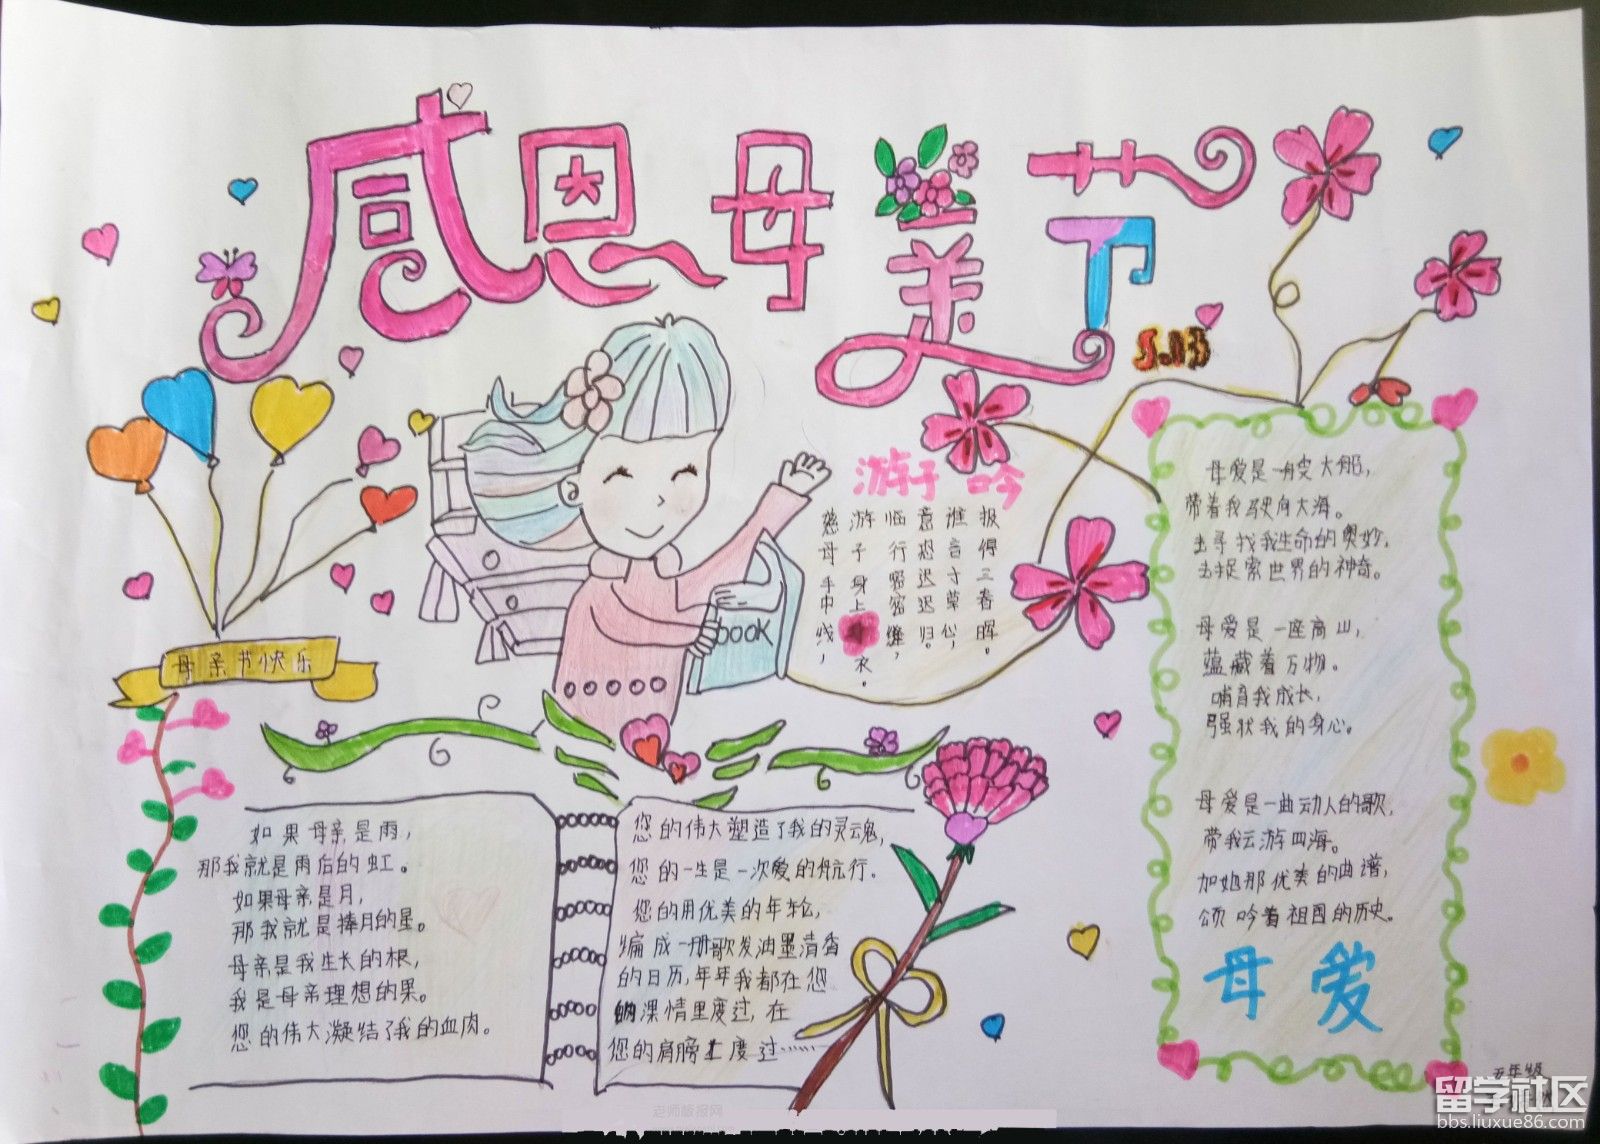 感恩母亲节
5.13
母亲节快乐
book
游子吟
慈母手中线，
游子身上衣。
临行密密缝，
意恐迟迟归。
谁言寸草心，
报得三春晖。
如果母亲是雨，
那我就是雨后的虹。
如果母亲是月，
那我就是捧月的星。
母亲是我生长的根，
我是母亲理想的果。
您的伟大凝结了我的血肉。
您的伟大塑造了我的灵魂，
您的一生是一次爱的航行。
您的用优美的年轮，
编成一册歌发油墨清香
的日历，年年我都在您
的深情里度过，在
您的肩膀上度过……
母爱是一艘大船，
带着我驶向大海。
去寻找我生命的奥妙，
去捉索世界的神奇。
母爱是一座高山，
蕴藏着万物。
哺育我成长，
强状我的身心。
母爱是一曲动人的歌，
带我云游四海。
加她那优美的曲谱，
颂吟着祖国的历史。
母爱
五年级
老师板报网
留学社区
bbs.liuxue86.com